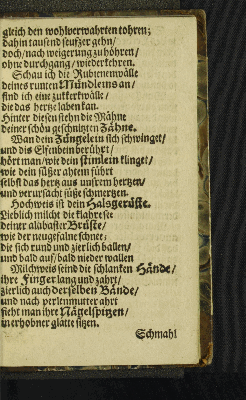 gleich den wohlverwahrten tohren;
dahin tausend seufzer gehn/
doch/nach weigerung zuhöhren/
ohne durchgang/wiederkehren.
Schau ich die Rubienenwälle
deines runten Mündleins an/
sind ich eine zukkerkwälle/
die das hertze laben kan.
Hinter diesen stehn die Mähne
deiner schön geschnitzten Zähne.
Wan dein Züngelein sich schwinget/
und die Elfenbein berührt/
hört man/wie dein stimlein klinget/
wie dein süßer ahtem führt
selbst das hertz aus unsrem hertzen/
und verursacht süße schmertzen.
Hochweis ist dein Halsgerüste.
Lieblich milcht die klahre see
deiner alabaster Brüste/
wie der neugefalne schnee;
die sich rund und zierlich ballen/
und bald auf/bald nieder wallen
Milchweis seind die schlanken Hände/
ihre Finger lang und zahrt/
zierlich auch derselben Bände/
und nach perlenmutter ahrt
siehet man ihre Nägelspitzen/
in erhobner glätte sitzen.
Schmahl